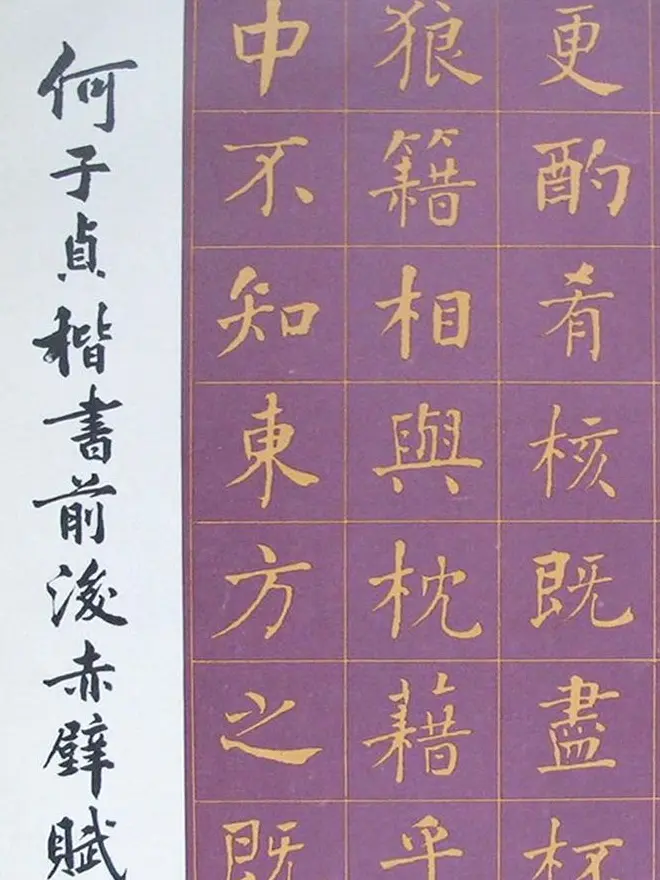 更酌肴核既盡杯
狼籍相與枕藉乎
中不知東方之既
何子貞楷書前後赤壁賦